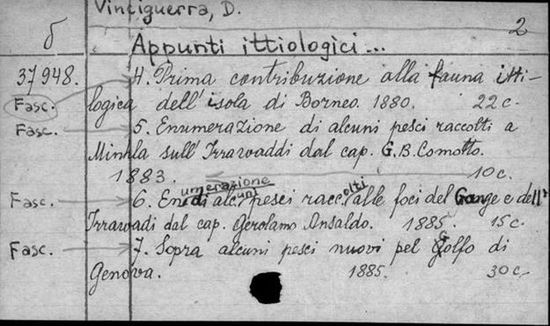 Vinciguerra, D.
б 2
Appunti ittiologici...
37948. 4. Prima contribuzione alla fauna itti-
Fasc. logica dell'isola di Borneo. 1880. 22 c.
Fasc. 5. Enumerazione di alcuni pesci raccolti a
Minhla sull'Irrawaddi dal cap. G.B. Comotto.
1883. 10 c.
Fasc. 6. Enumerazione di alcuni pesci raccolti alle foci del Gange e dell'
Irrawadi dal cap. Gerolamo Ansaldo. 1885. 15 c.
Fasc. 7. Sopra alcuni pesci nuovi pel Golfo di
Genova. 1885. 30 c.